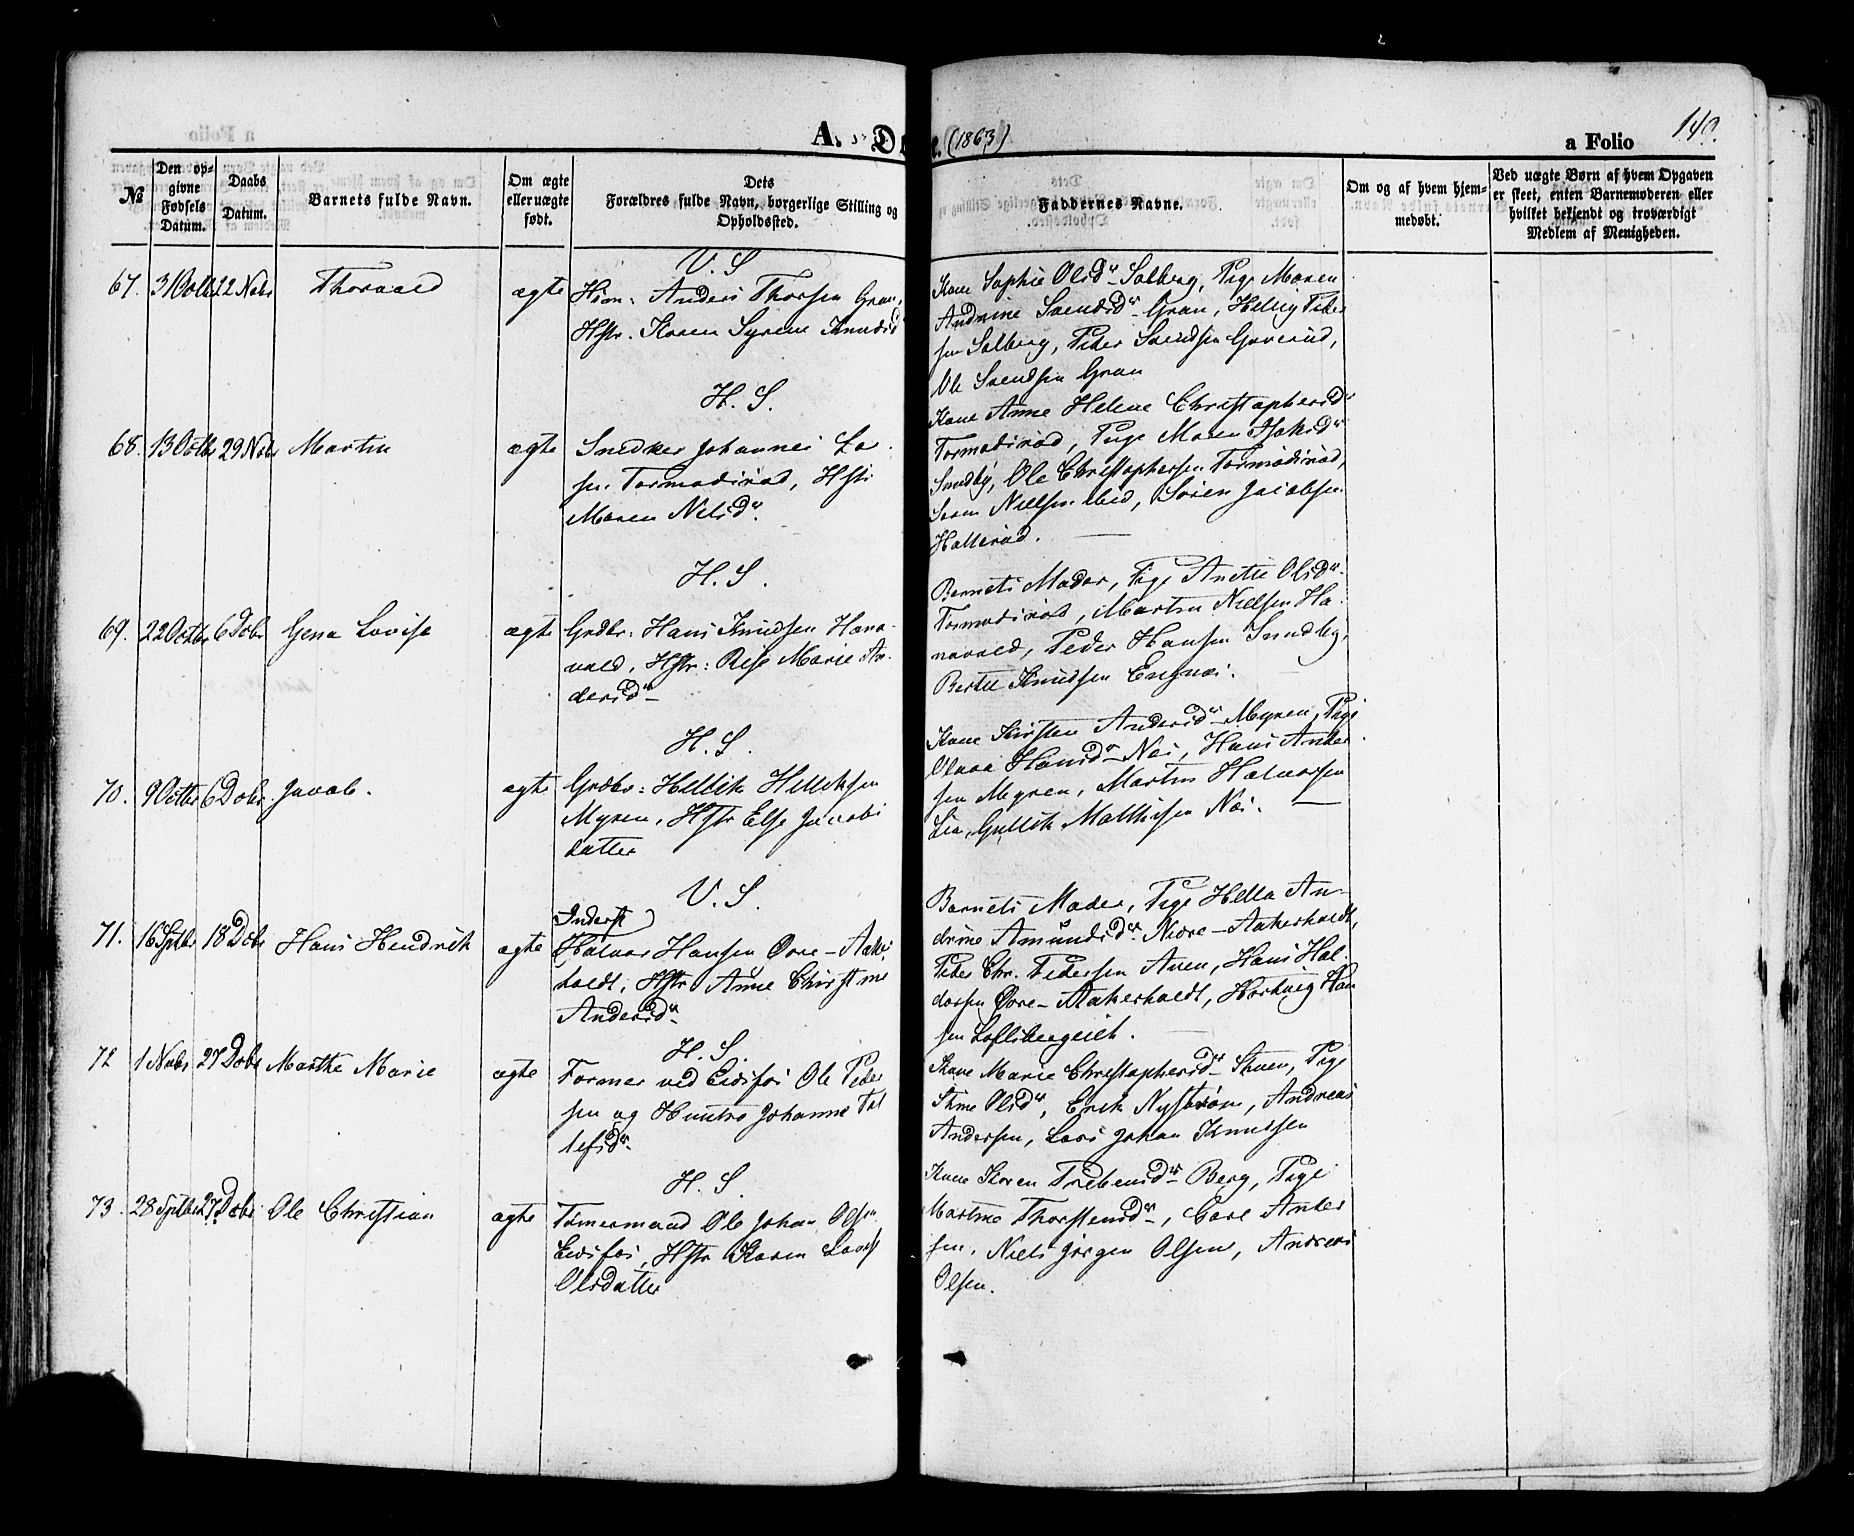 A. D
e. (1863)
a Folio
140.
№
Den opgivne Fødsels Datum.
Daabs Datum.
Barnets fulde Navn.
Om ægte eller uægte født.
Dets Forældres fulde Navn, borgerlige Stilling og Opholdssted.
Faddernes Navne.
Om og af hvem hjemmedøbt.
Ved uægte Børn af hvem Opgaven er skeet, enten Barnemoderen eller hvilket bekjendt og troværdigt Medlem af Menigheden.
V. S
67. 3 Octb 22 Nobr Thorvald ægte Huum: Anders Thorsen Gran,
Hstr. Karen Syrene Knudsd
Kone Sophie Olsdr Solberg, Pige Maren
Andrine Svendsdr Gran, Helvig Peder
sen Solberg, Peder Svendsen Goverud,
Ole Svendsen Gran
H. S.
68. 13 Octbr 29 Nobr Martin ægte Snedker Johannes La
sen Tormodsrød, Hstr
Maren Nilsdr.
Kone Anne Helene Christophersdr
Tormodsrød, Pige Maren Isaksdr
Sundby, Ole Christophersen Tormodsrød,
Nielsen ibid, Søren Jacobsen
Hallerød.
H. S.
69. 22 Octbr 6 Dobr Gena Lovise ægte Grdbr: Hans Knudsen Hana
vald, Hstr: Rise Marie An
dersdr
Barnets Moder, Pige Anette Olsdr.
Tormodsrød, Martin Nielsen Ha
navald, Peder Hansen Sundby,
Bertel Knudsen Engnæs.
H. S.
70. 9 Octbr 6 Dobr Jacob. ægte Grdbr: Hellik Helleksen
Myren, Hstr Else Jacobs
datter
Kone Kirsten Andersdr Myren, Pige
Olava Hansdr Næs, Hans Ander
sen Myren, Martin Halvorsen
Lia, Gullik Mathisen Næs.
V. S.
71. 16 Sptbr 18 Dobr Hans Hendrik ægte Inderst
Halvor Hansen Øvre-Aaker
holdt, Hstr Anne Christine
Andersdr
Barnets Moder, Pige Hella An-
drine Amundsdr Nedre-Aakerholdt,
Peder Chr. Pedersen Aven, Hans Hal
vorsen Øvre-Aakerholdt, Hartvig Han
sen Loftsbergeich.
H. S.
72 1 Nobr 27 Dobr Marthe Marie ægte Former ved Eidsfos Ole Peder
sen og Hustro Johanne Tol
lefsdr
Kone Marie Christophersdr Stuen, Pige
Stine Olsdr, Erik Nystrøm, Andreas
Andersen, Lars Johan Knudsen
H. S.
73. 28 Sptbr 27 Dobr Ole Christian ægte Tømermand Ole Johan Olsen
Eidsfos, Hstr Karen Lovise
Olsdatter
Kone Karen Prebensdr Berg, Pige
Martine Thorstensdr, Carl Ander
sen, Niels Jørgen Olsen, Andreas
Olsen.